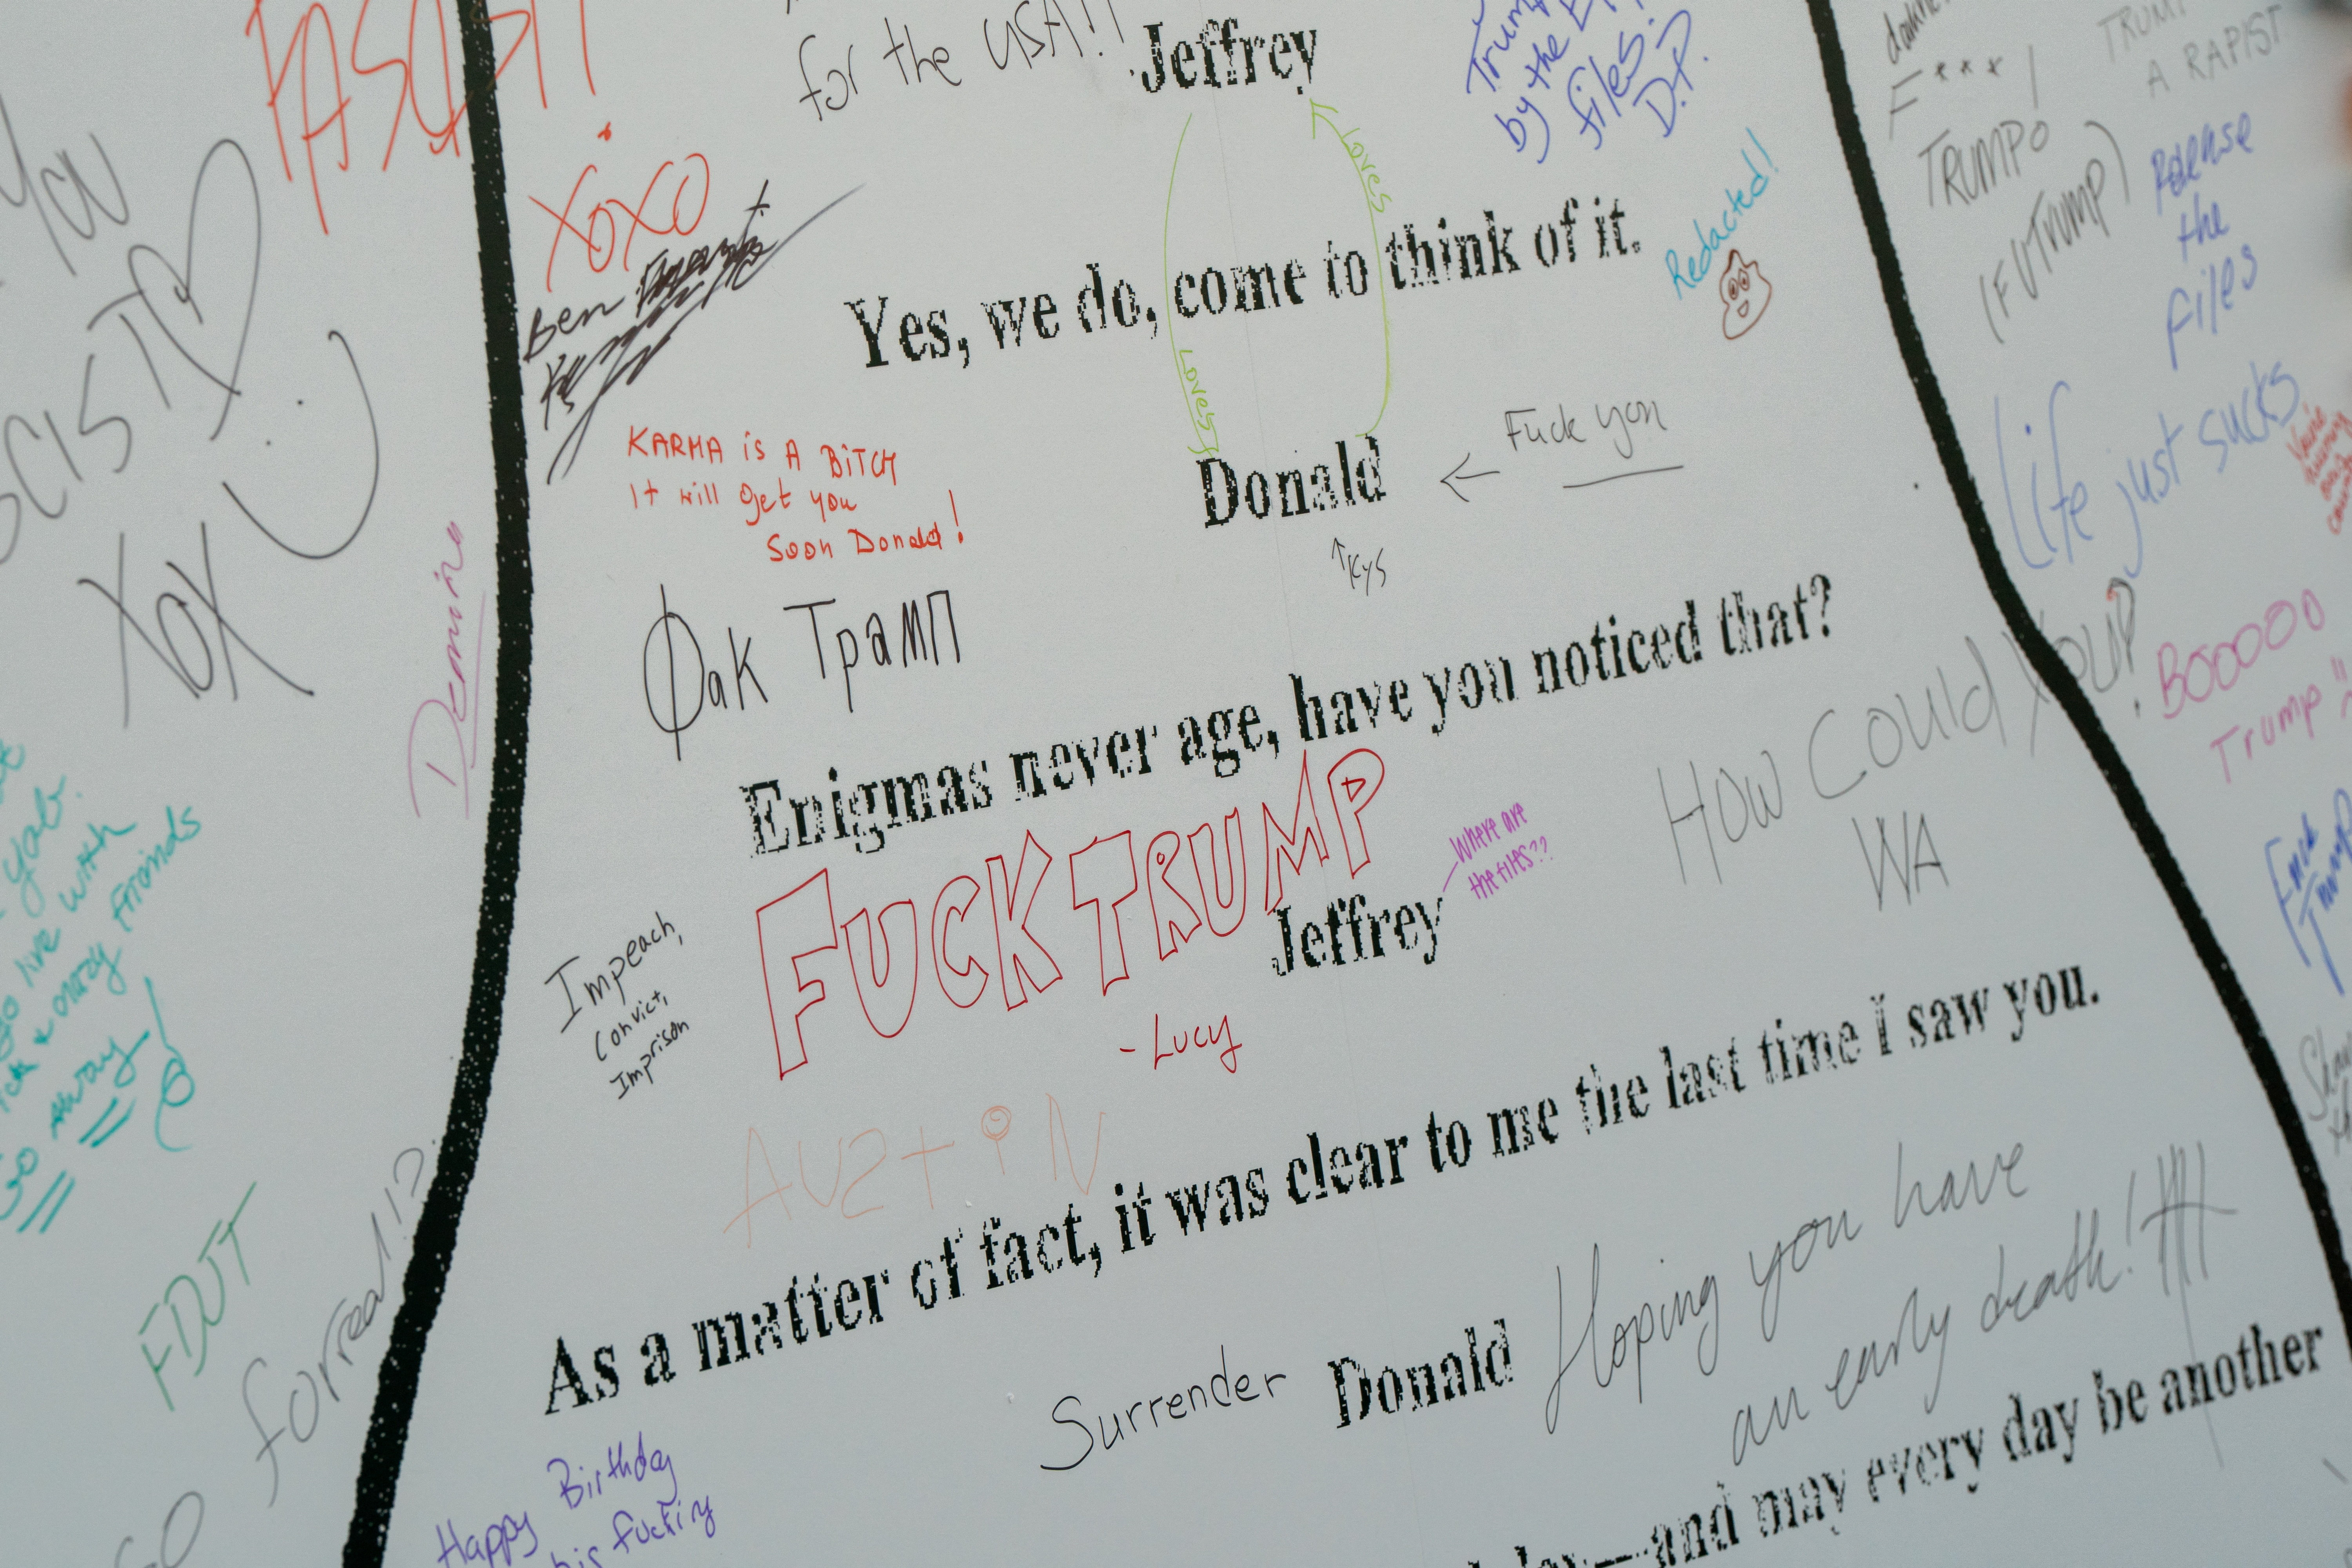 FASCIST!
for the USA!!
Jeffrey
Trump
by the
files.
D.P.
F***!
TRUMPO
(FUTRUMP)
TRUMP
A RAPIST
Release
the
files
You
XOXO
Ben
loves
Redacted!
Yes, we do, come to think of it.
loves
Life just sucks
XOX
KARMA is A BiTCH
It will get you
Soon Donald!
Donald
← Fuck you
↑ KYS
Фак Трамп
Enigmas never age, have you noticed that?
How Could You?!
WA
BOOOOO
Trump
FUCK TRUMP
- Lucy
Jeffrey
Where are
the files??
Fuck
Trump
Impeach,
Convict,
Imprison
live with
crazy friends
Go away!
AUZtiN
As a matter of fact, it was clear to me the last time I saw you.
FDJT
forreal!?
Surrender
Donald
Hoping you have
an early death!
Happy Birthday
his fucking
—and may every day be another